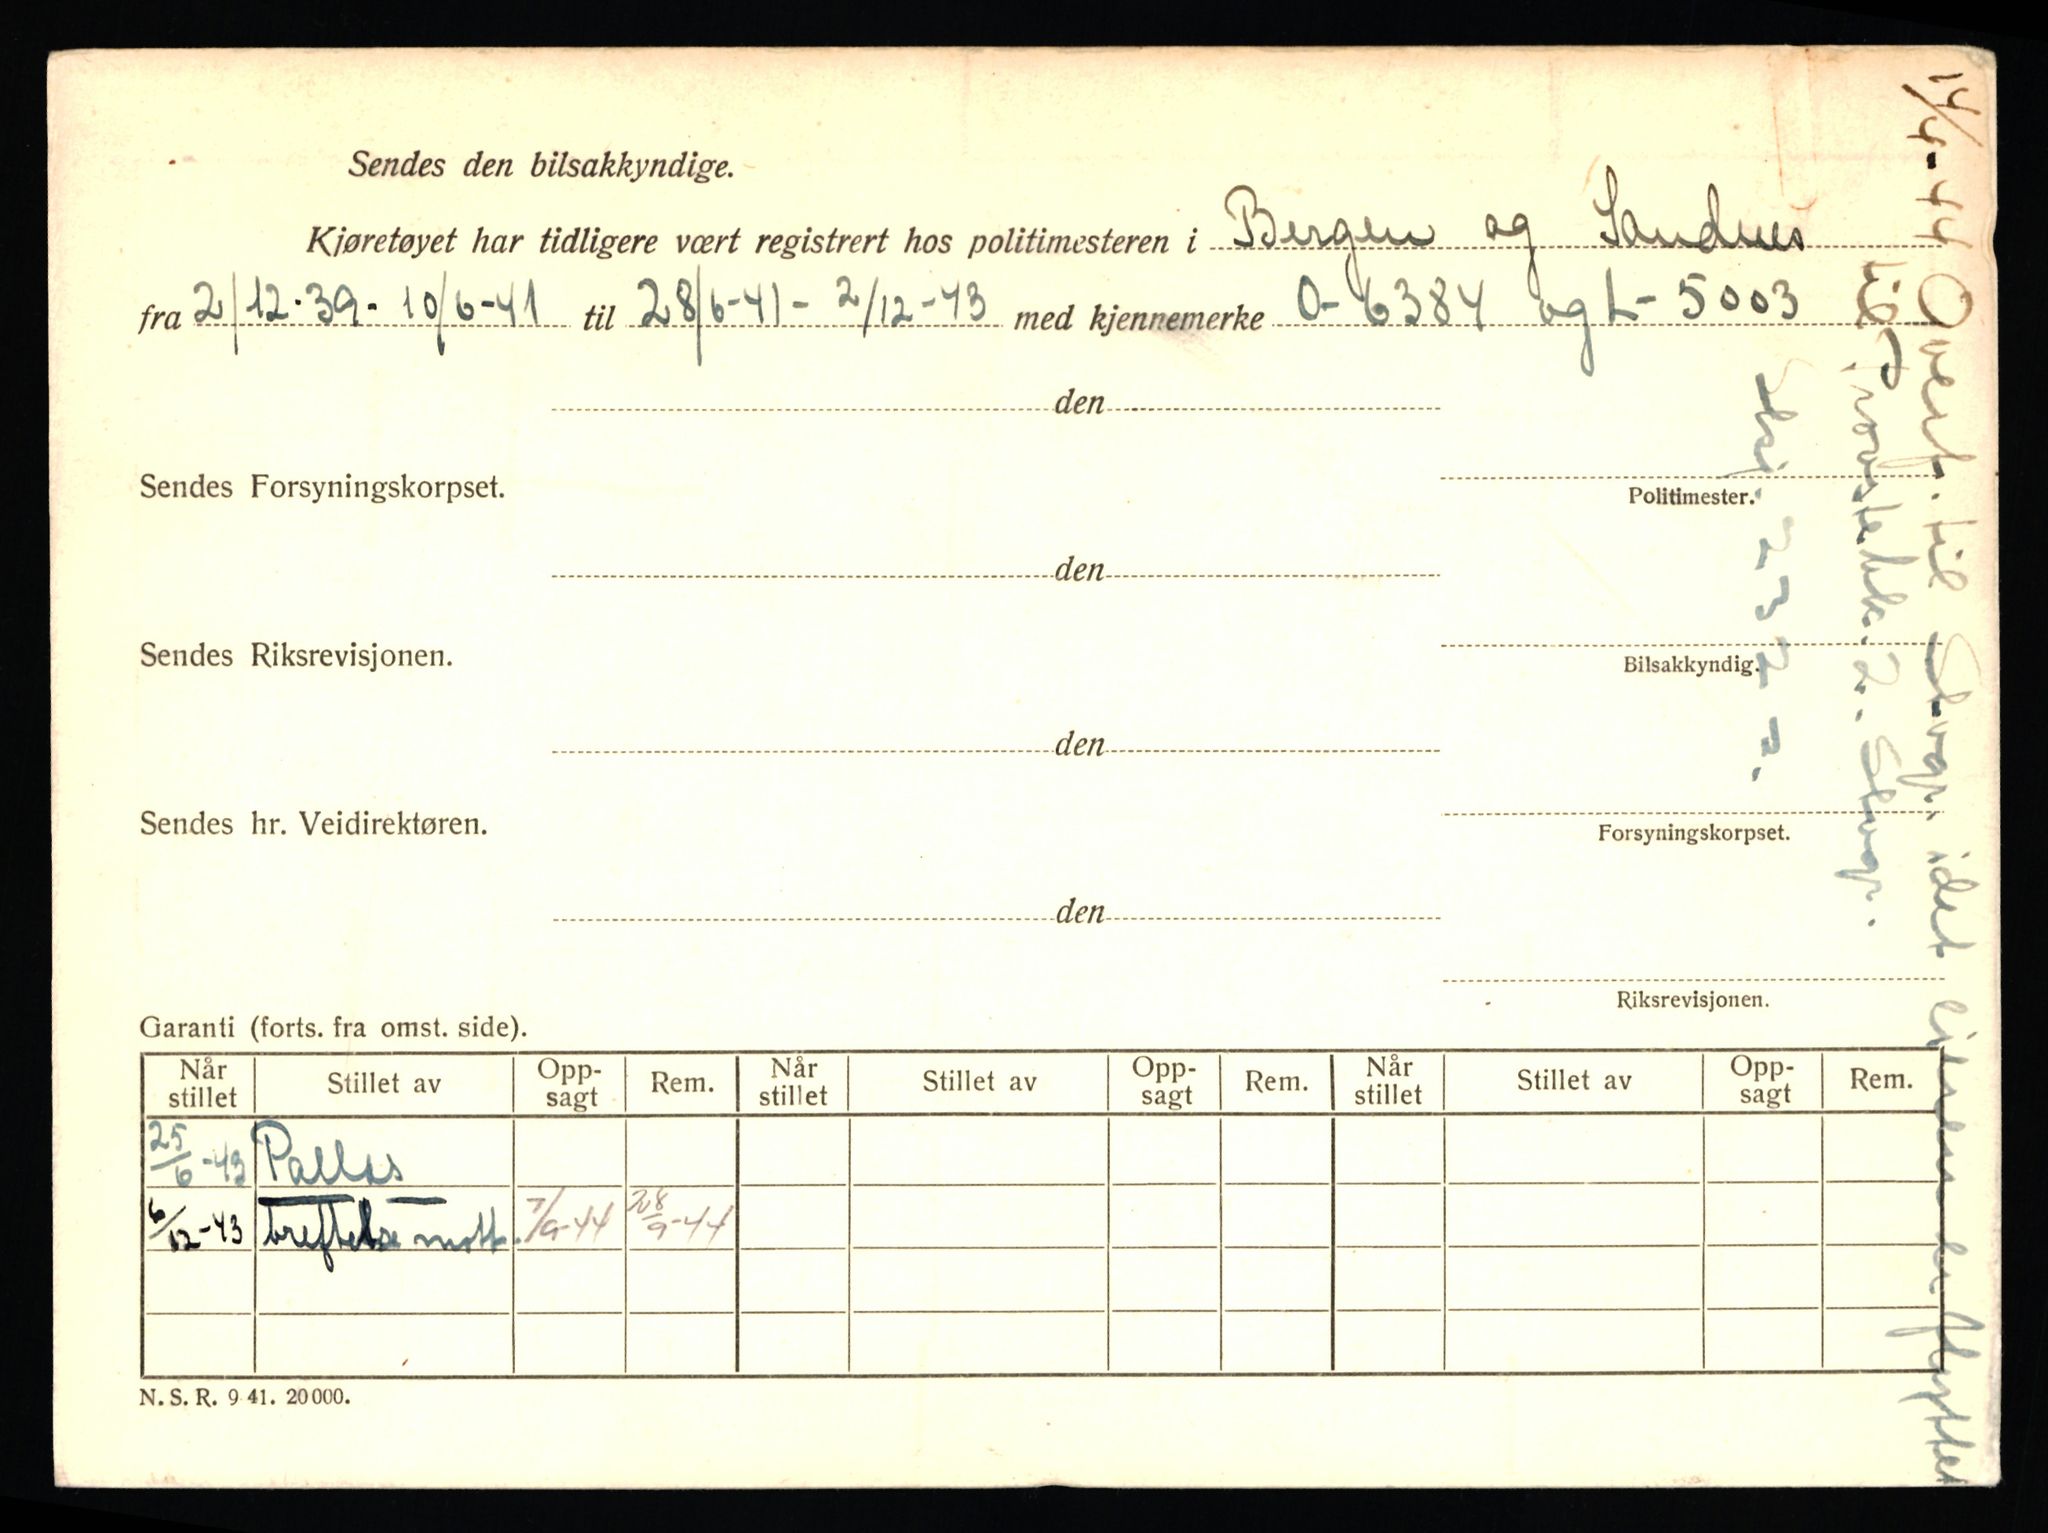 Sendes den bilsakkyndige.
Kjøretøyet har tidligere vært registrert hos politimesteren i Bergen og Sandnes
fra 2/12-39 - 10/6-41 til 28/6-41 - 2/12-43 med kjennemerke O-6384 og L-5003
den
Sendes Forsyningskorpset.
Politimester.
den
Sendes Riksrevisjonen.
Bilsakkyndig.
den
Sendes hr. Veidirektøren.
Forsyningskorpset.
den
Riksrevisjonen.
Garanti (forts. fra omst. side).
Når stillet Stillet av Opp-sagt Rem. Når stillet Stillet av Opp-sagt Rem. Når stillet Stillet av Opp-sagt Rem.
25/6-43 Pallas
6/12-43 breftelse mott. 7/9-44 28/9-44
N. S. R. 9 41. 20 000.
14/4-44 Overf. til Stvgr. idet eieren er flyttet
til Prostebk. 2. Stvgr.
Skj. 232